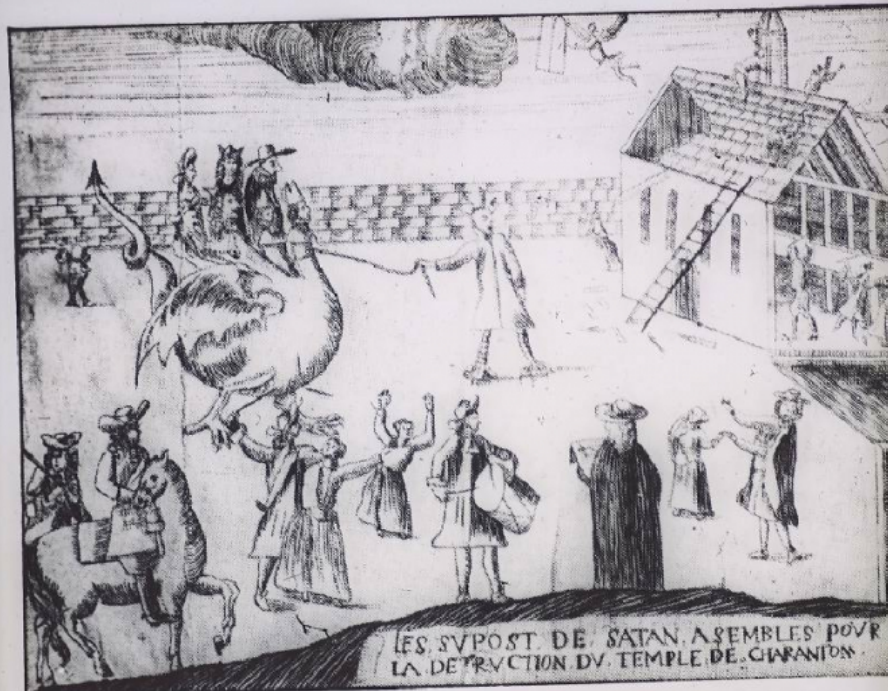 LES. SVPOST. DE. SATAN. ASEMBLES POVR
LA DETRVCTION DV. TEMPLE DE. CHARANTON.